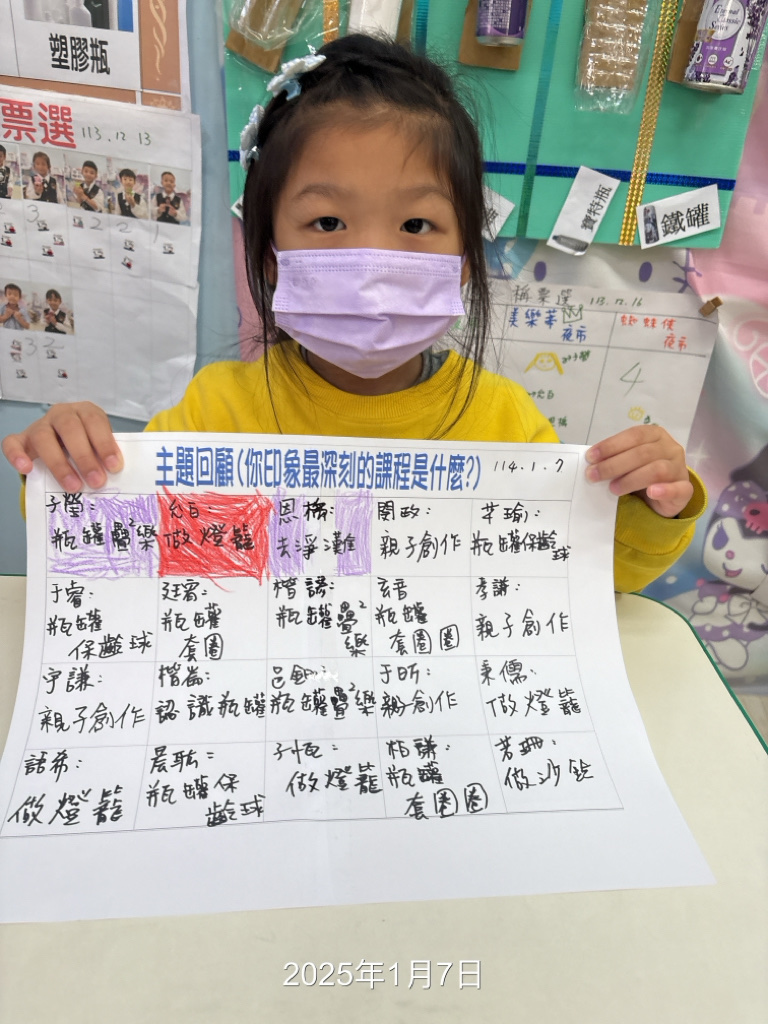 塑膠瓶
票選 113.12.13
3 2 2 1
3 2
寶特瓶
鐵罐
票選 113.12.16
美樂蒂
夜市
蜘蛛俠
夜市
4
主題回顧(你印象最深刻的課程是什麼?) 114.1.7
子瑩:
瓶罐疊²樂
允自:
做燈籠
恩楀:
去淨灘
閔政:
親子創作
苹瑜:
瓶罐保齡球
于睿:
瓶罐
保齡球
廷睿:
瓶罐
套圈
楷諺:
瓶罐疊²樂
玄晉:
瓶罐
套圈圈
孝謙:
親子創作
宇謙:
親子創作
楷崙:
認識瓶罐
瓶罐疊²樂
于昕:
親子創作
秉儒:
做燈籠
語希:
做燈籠
晨耘:
瓶罐保
齡球
子恆:
做燈籠
柏謙:
瓶罐
套圈圈
若珊:
做沙鈴
2025年1月7日